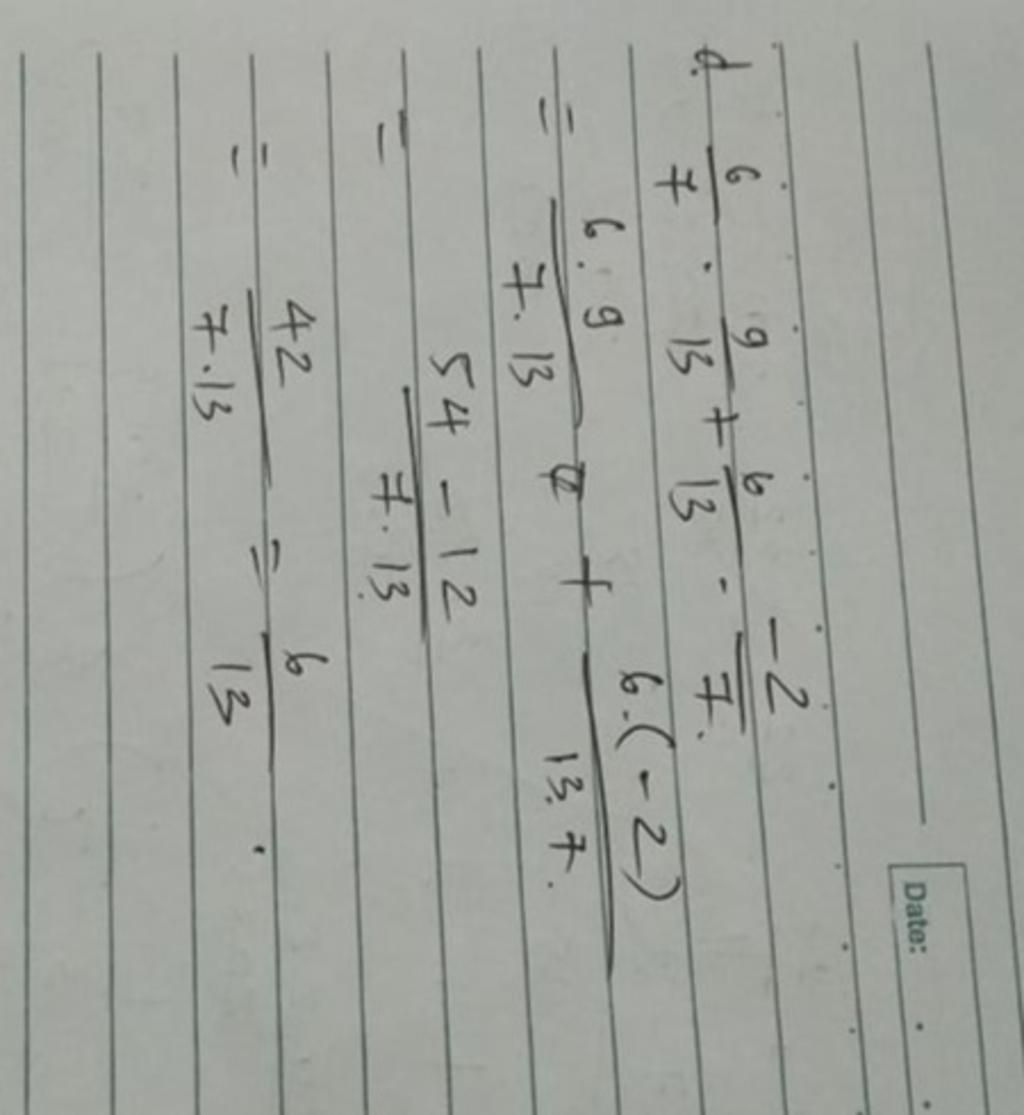 Date:
d. 6/7 . 9/13 + 6/13 . -2/7.
= 6.9/7.13 + 6.(-2)/13.7.
= 54-12/7.13
= 42/7.13 = 6/13.